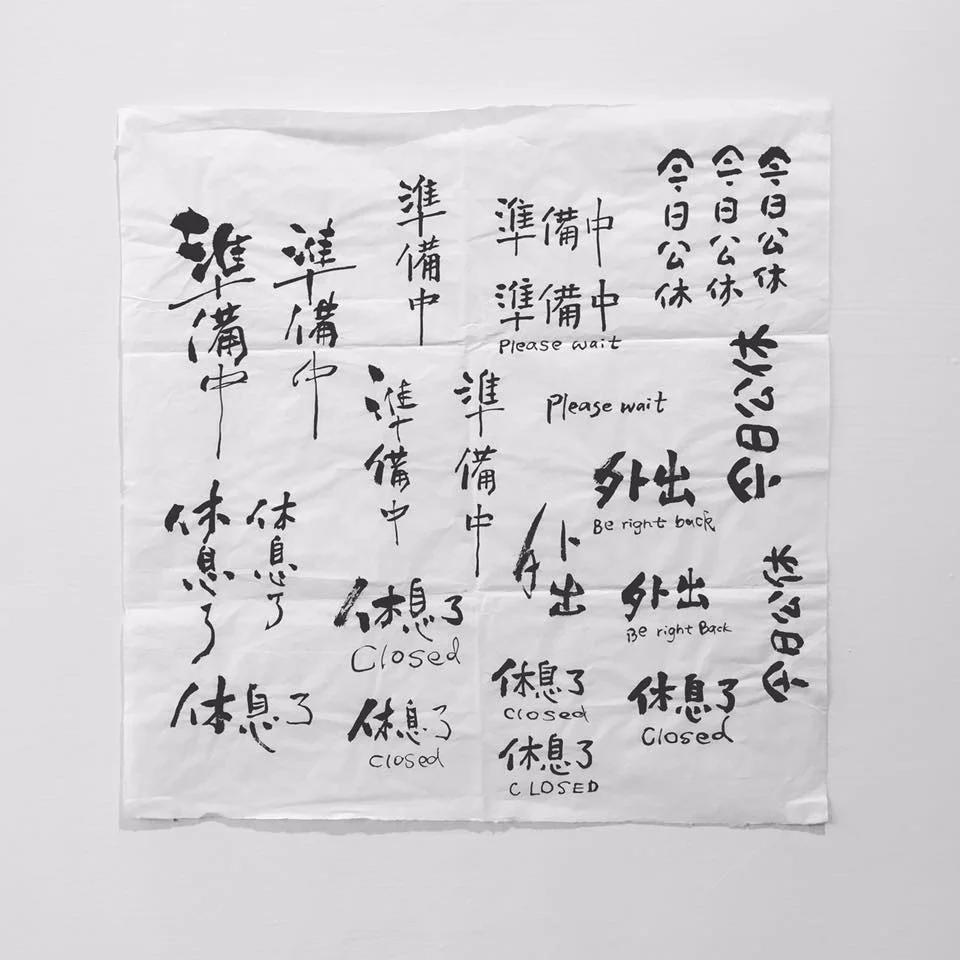 準備中
準備中
準備中
準備中
準備中
Please wait
今日公休
今日公休
今日公休
準備中
準備中
Please wait
今日公休
外出
Be right back
休息了
休息了
外出
外出
Be right Back
今日公休
休息了
Closed
休息了
休息了
closed
休息了
closed
休息了
CLOSED
休息了
Closed